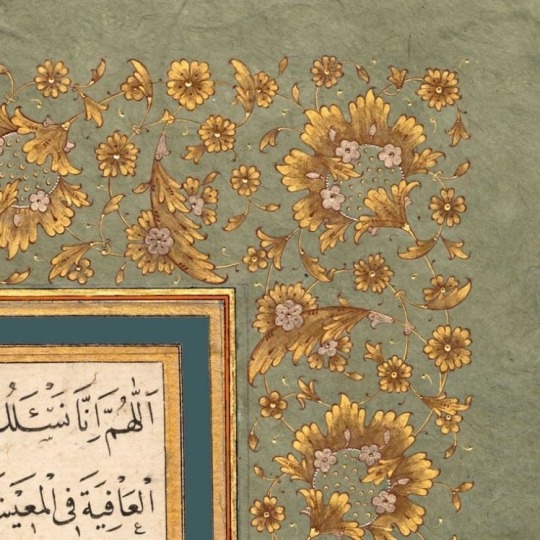 اَللّٰهُمَّ اِنَّا نَسْـَٔلُكَ
الْعَافِيَةَ فِى الْمَعِيشَ